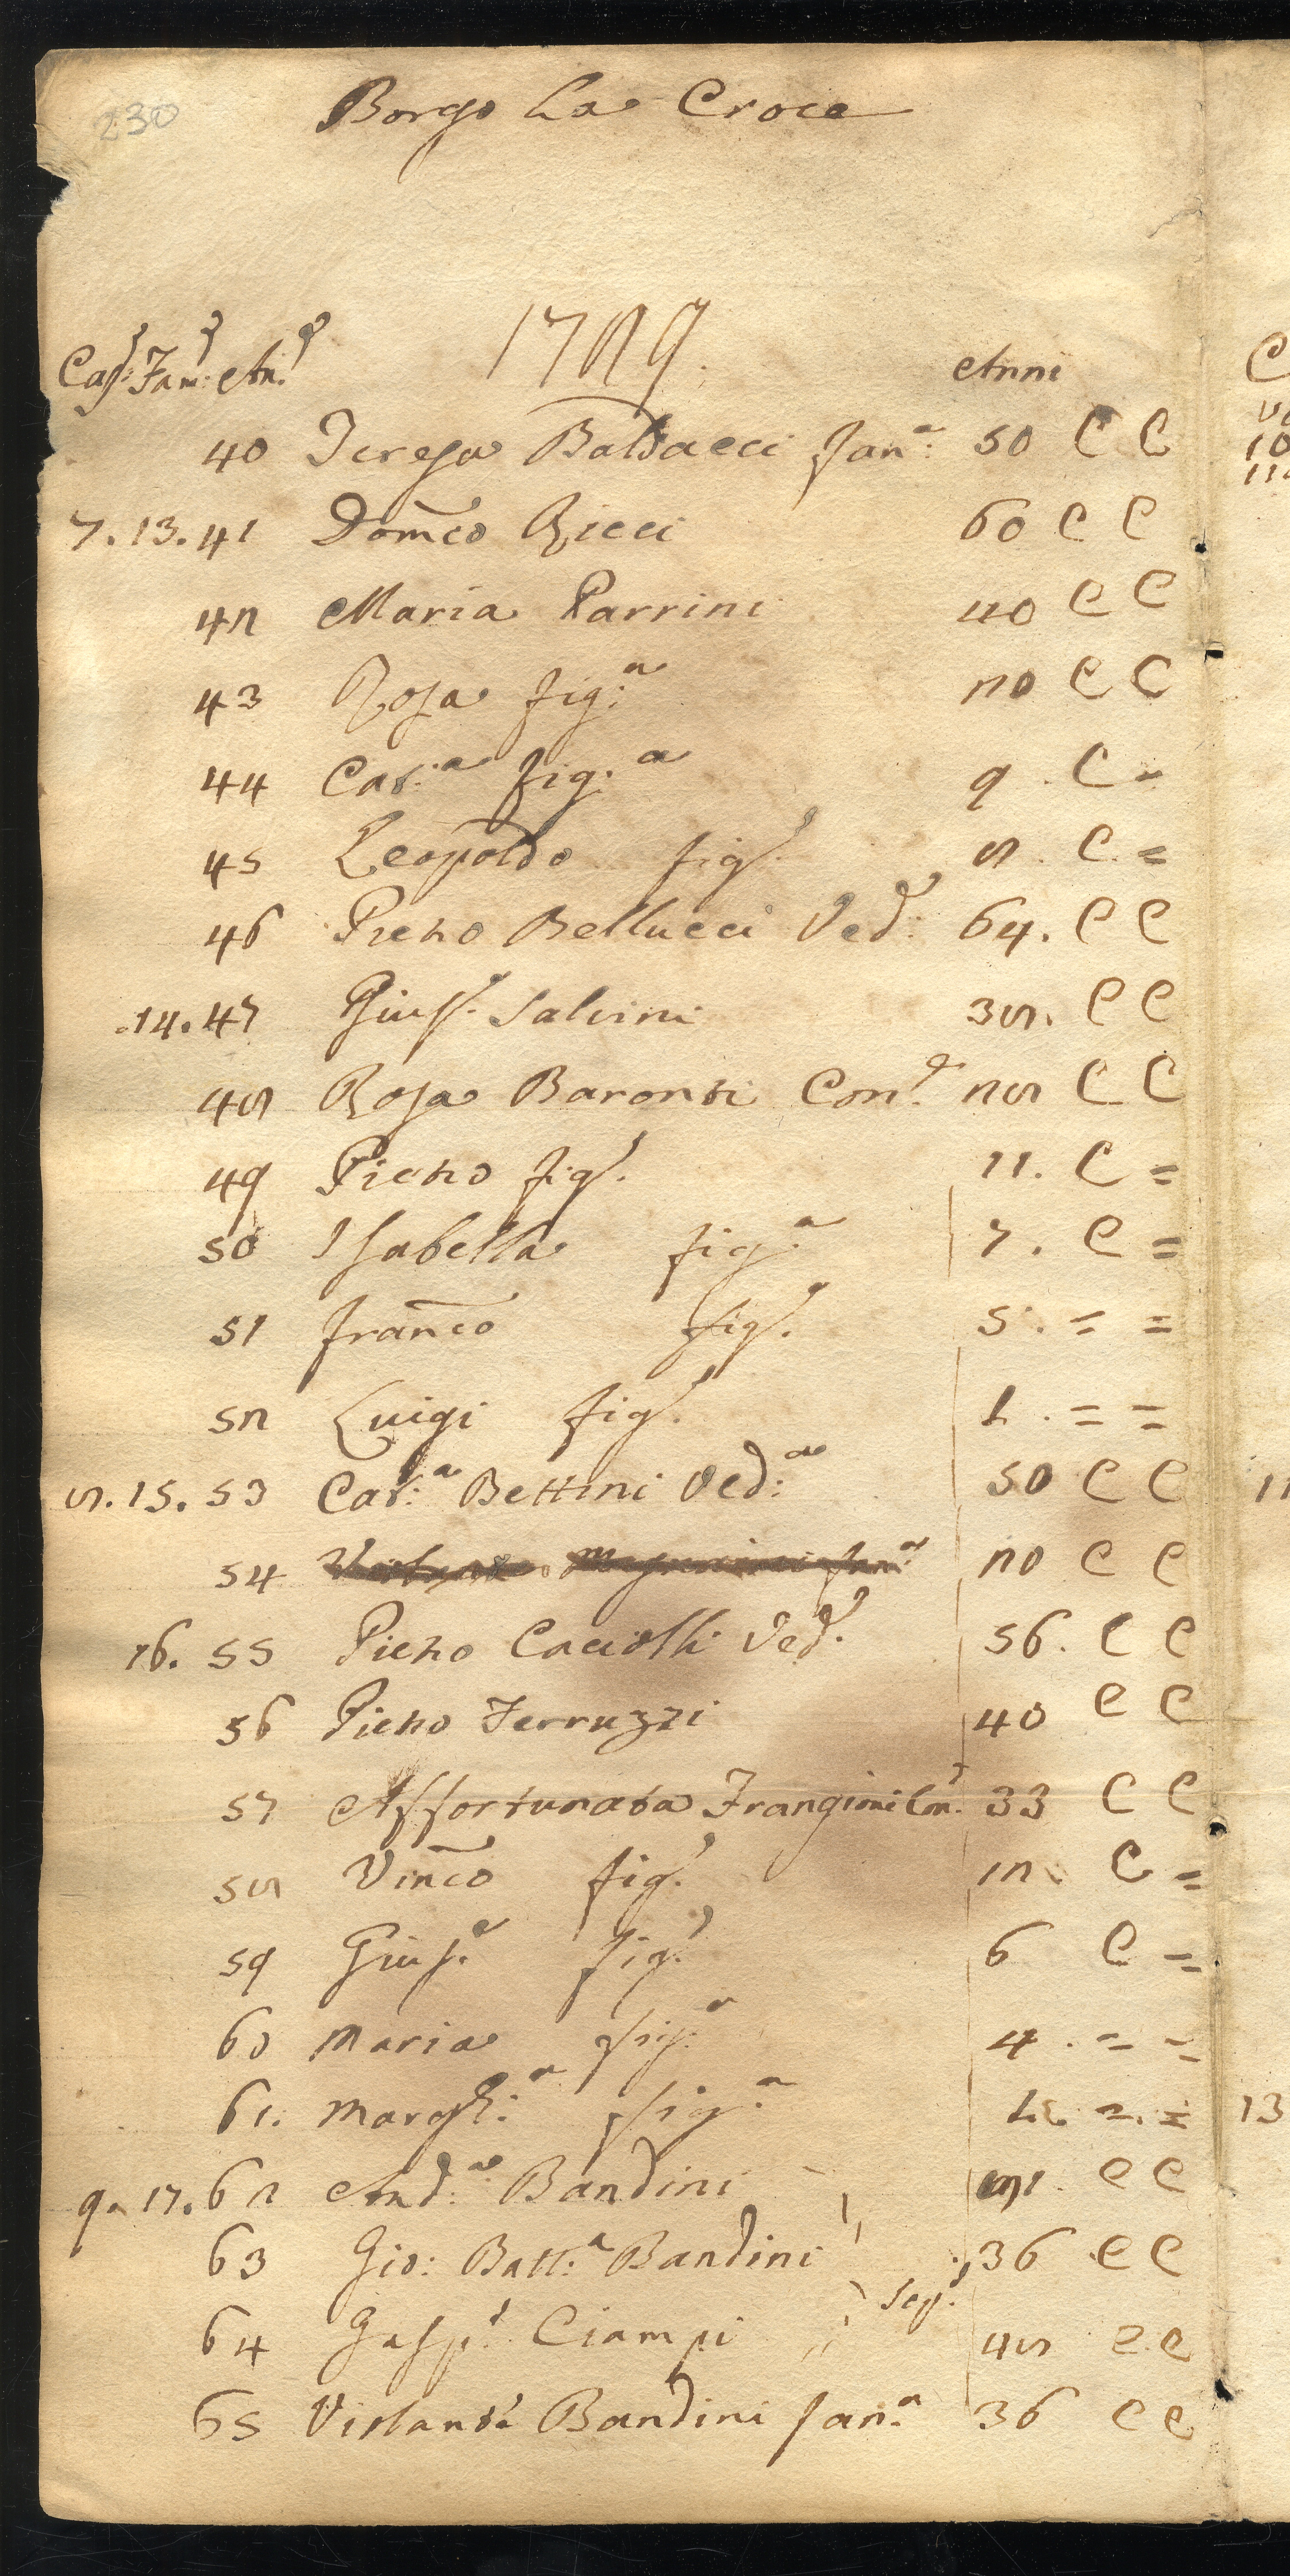 230
Borgo La Croce
1789.
Cas: Fam: An: Anni
40 Teresa Baldacci Fan.a: 50 C C
7. 13. 41 Dom̃co Ricci 60 C C
42 Maria Parrini 40 C C
43 Rosa fig:a 20 C C
44 Cat:a fig:a 9. C =
45 Leopoldo fig.o 8. C. =
46 Pietro Bellucci Ved.o: 64. C C
.14. 47 Gius.e Salvini 38. C C
48 Rosa Baronti Con.e 28 C C
49 Pietro fig.o 11. C =
50 Isabella fig.a 7. C =
51 Frañco fig.o 5. = =
52 Luigi fig.o 1. = =
8. 15. 53 Cat:a Bettini Ved:a 50 C C
54 20 C C
16. 55 Pietro Caciolli Ved.o 56. C C
56 Pietro Ferruzzi 40 C C
57 Affortunata Frangini Con. 33 C C
58 Viñco fig.o 12 C =
59 Gius.e fig.o 6 C =
60 Maria fig.a 4. = =
61. Margh:a fig.a 1. =. =
9. 17. 62 And:a Bandini C C
63 Gio: Batt:a Bandini 36 C C
Seg.
64 Gasp.e Ciampi 48 C C
65 Violante Bandini Fan.a 36 C C
13